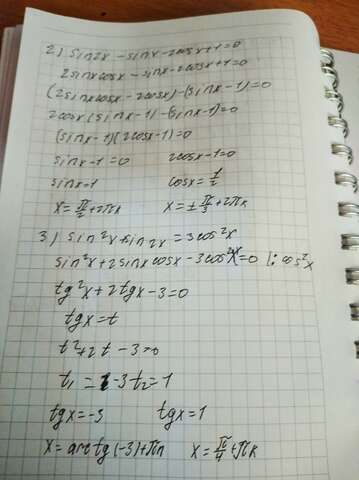 2) sin2x - sinx - 2cosx + 1 = 0
2sinxcosx - sinx - 2cosx + 1 = 0
(2sinxcosx - 2cosx) - (sinx - 1) = 0
2cosx(sinx - 1) - (sinx - 1) = 0
(sinx - 1)(2cosx - 1) = 0
sinx - 1 = 0 2cosx - 1 = 0
sinx = 1 cosx = 1/2
x = π/2 + 2πk x = ± π/3 + 2πk
3) sin²x + sin2x = 3cos²x
sin²x + 2sinxcosx - 3cos²x = 0 |: cos²x
tg²x + 2tgx - 3 = 0
tgx = t
t² + 2t - 3 = 0
t₁ = -3 t₂ = 1
tgx = -3 tgx = 1
x = arctg(-3) + πn x = π/4 + πk